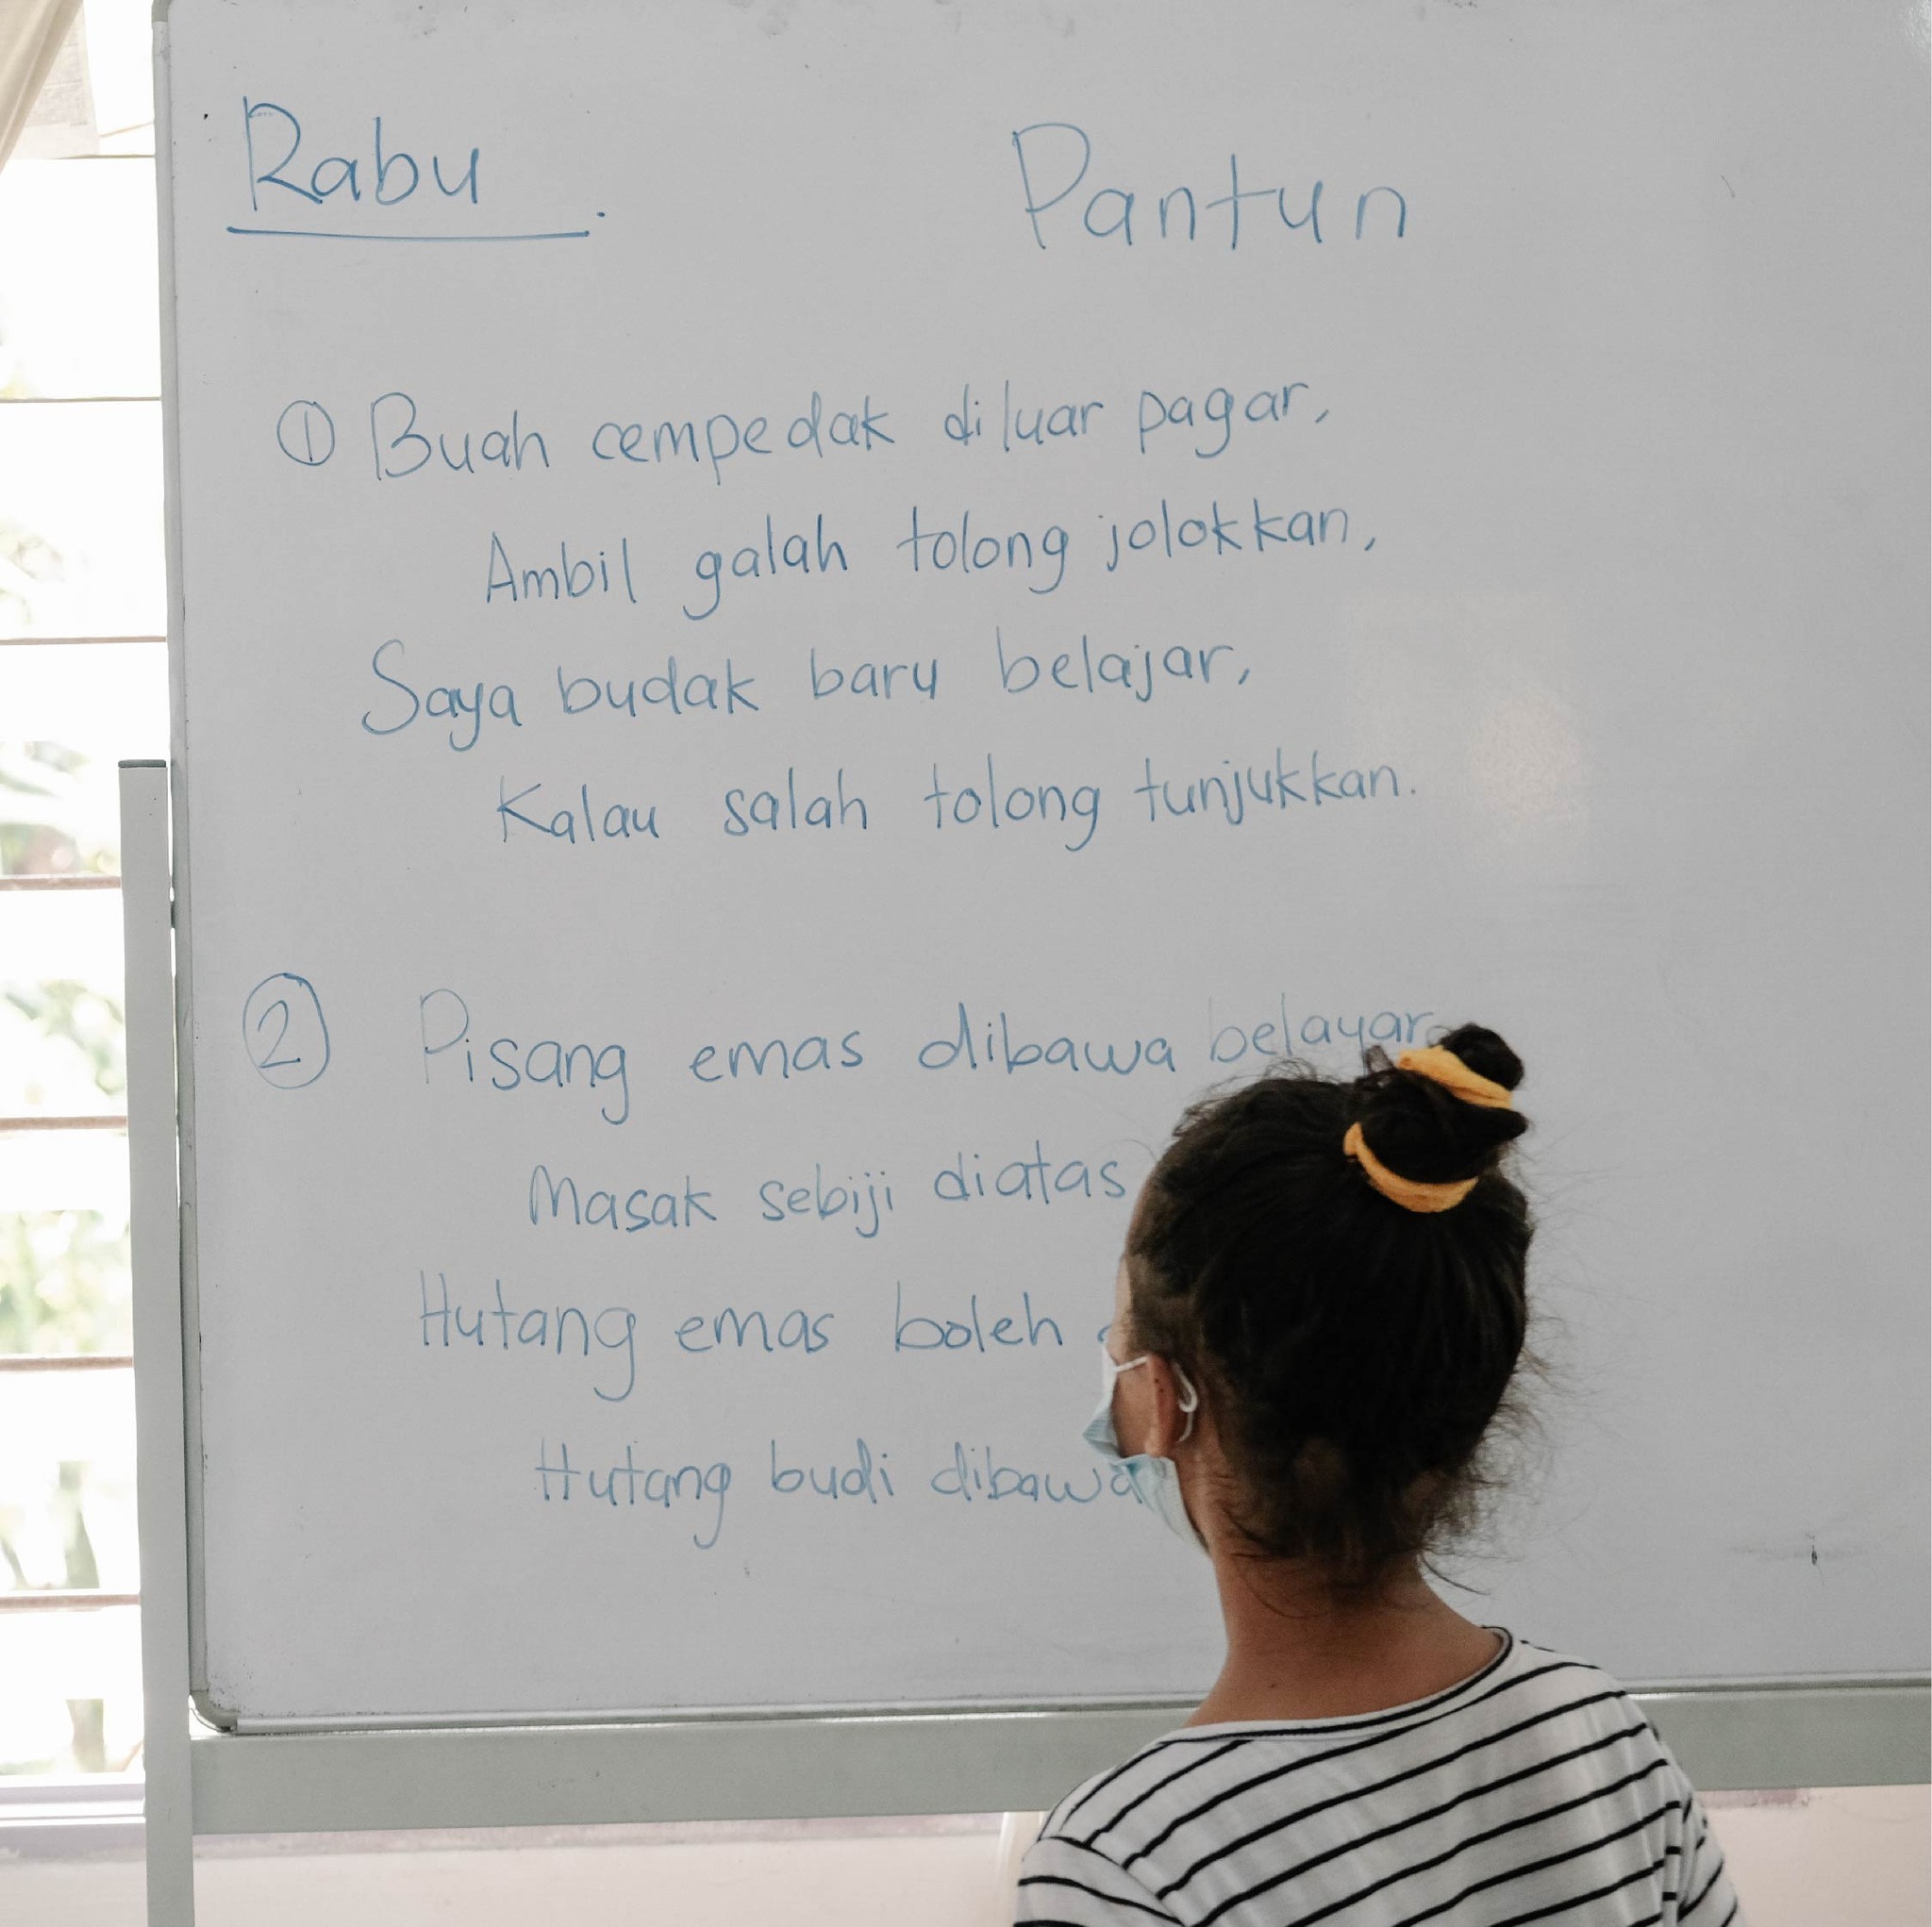 Rabu
Pantun
① Buah cempedak diluar pagar,
Ambil galah tolong jolokkan,
Saya budak baru belajar,
Kalau salah tolong tunjukkan.
② Pisang emas dibawa belayar
Masak sebiji diatas
Hutang emas boleh
Hutang budi dibawa